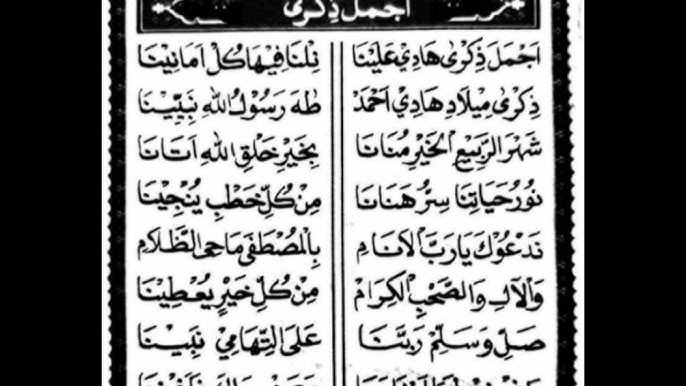 اَجْمَل ذِكْرَى
اَجْمَل ذِكْرَى هَادِي عَلَيْنَا نِلْنَا فِيهَا كُلْ اَمَانِيْنَا
ذِكْرَى مِيْلَادِ هَادِي اَحْمَدْ طٰهَ رَسُوْلُ اللهِ نَبِيِّيْنَا
شَهْرَ الرَّبِيْعِ الْخَيْرِ مُنَانَا بِخَيْرِ خَلْقِ اللهِ اَتَانَا
نُوْرُ حَيَاتِنَا سِرُّ هَنَانَا مِنْ كُلِّ خَطْبٍ يُنْجِيْنَا
نَدْعُوْكَ يَارَبَّ الْاَنَامِ بِالْمُصْطَفَى مَاحِى الظَّلَامِ
وَالْاٰلِ وَالصَّحْبِ الْكِرَامْ مِنْ كُلِّ خَيْرٍ يُعْطِيْنَا
صَلِّ وَسَلِّمْ رَبَّنَا عَلَى التِّهَامِيْ نَبِيْنَا